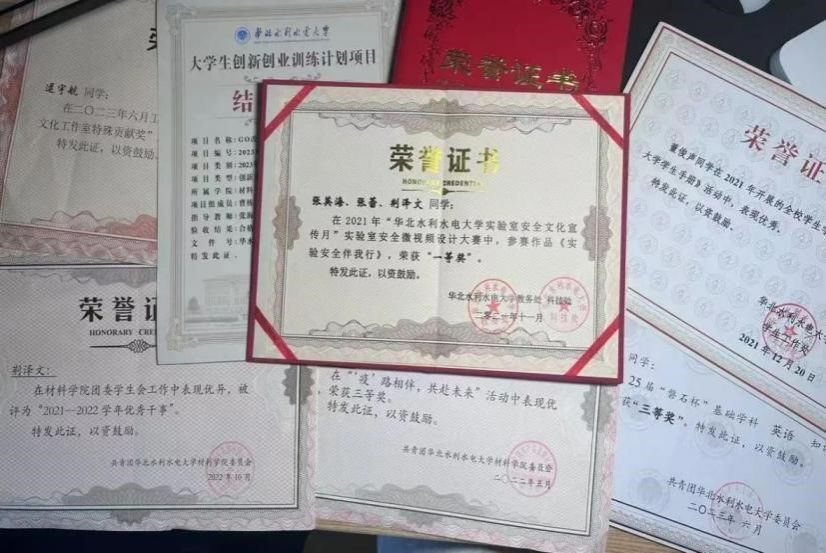 同学:
在二〇二三年六月
文化工作室特殊贡献奖”
特发此证,以资鼓励
华北水利水电大学
大学生创新创业训练计划项目
结
项目名称:
项目编号:
项目类别:
项目类型:
所属学院:材料
项目组成员:
指导教师:
验收结果:合格
文件号:华水
特发此证.
荣誉证书
荣誉证书
HONORARY CREDENTIAL
张英海、张蕾、荆泽文 同学:
在 2021 年“华北水利水电大学实验室安全文化宣
传月”实验室安全微视频设计大赛中,参赛作品《实
验安全伴我行》,荣获“一等奖”。
特发此证,以资鼓励。
华北水利水电大学教务处 科技处
二〇二一年十一月
荣誉证
董俊声同学在 2021 年开展的全校学生
大学学生手册》活动中,表现优秀。
特发此证,以资鼓励。
华北水利水电大
学生工作处
2021 年 12 月 20 日
荣誉证
HONORARY CRE
荆泽文:
在材料学院团委学生会工作中表现优异,被
评为“2021—2022 学年优秀干事”。
特发此证,以资鼓励。
共青团华北水利水电大学材料学院委员会
2022 年 10 月
在“‘疫’路相伴,共赴未来”活动中表现优
荣获三等奖。
特发此证,以资鼓励。
共青团华北水利水电大学材料学院委员会
二〇二二年五月
同学:
25 届“磐石杯”基础学科 英语 知
获“三等奖”。特发此证,以资鼓励。
共青团华北水利水电大学委员会
二〇二三年 六 月